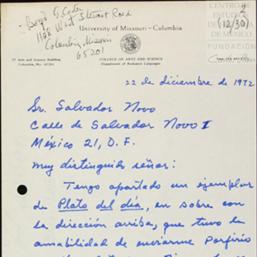 Boyd G. Carter
1128 West Stewart Road
Columbia, Missouri
65201
University of Missouri - Columbia
CENTRO DE
ESTUDIOS
DE MÉXICO
FUNDACIÓN
(12/30)
2
27 Arts and Science Building
Columbia, Mo. 65201
COLLEGE OF ARTS AND SCIENCE
Department of Romance Languages
22 de diciembre de 1972
Sr. Salvador Novo
Calle de Salvador Novo 1
México 21, D.F.
Muy distinguido señor:
Tengo apartado un ejemplar
de Plato del día, en sobre con
la dirección arriba, que tuvo la
amabilidad de enviarme Porfirio